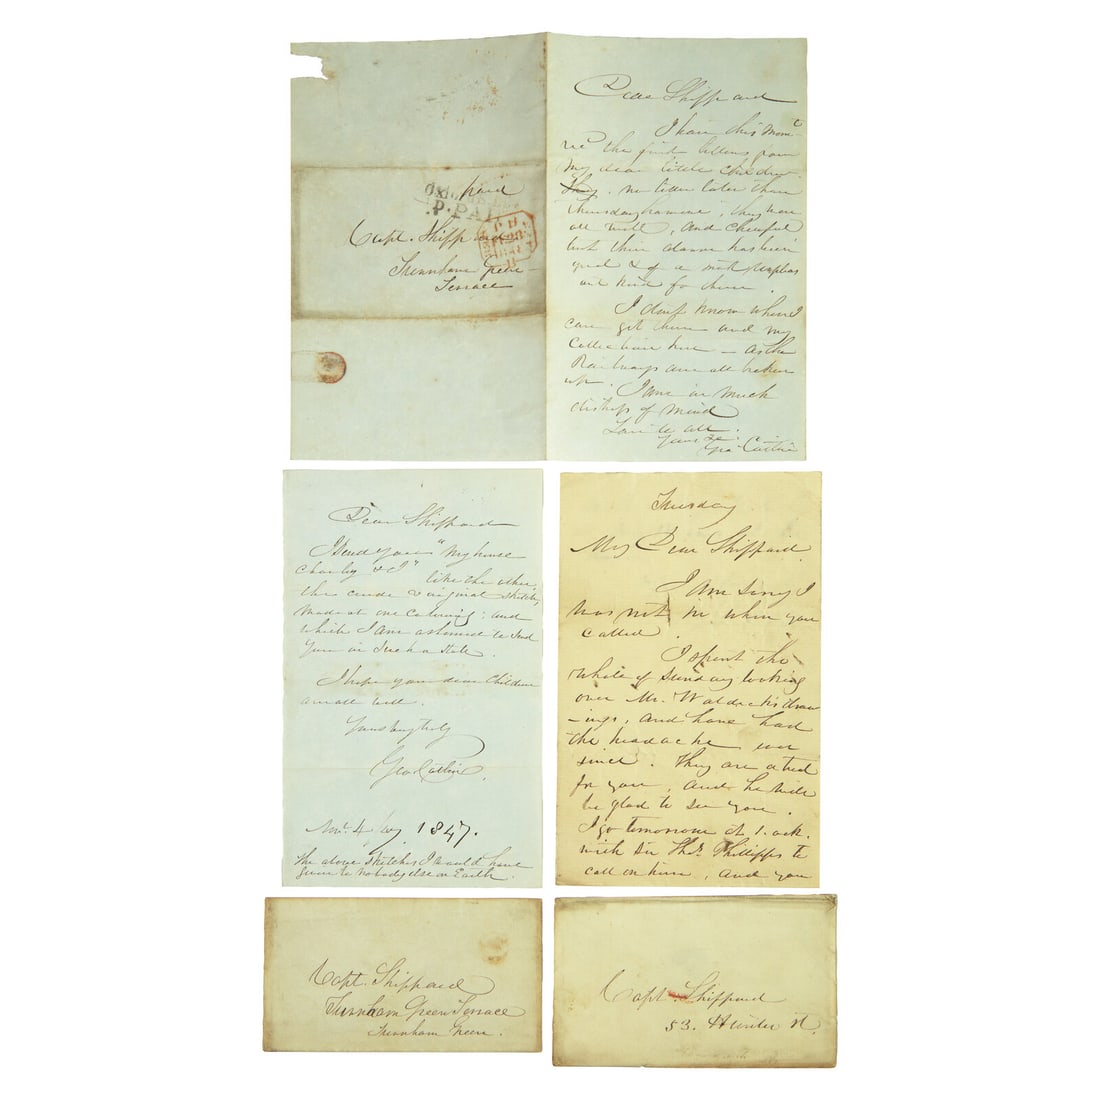 paid
P. PAI
Capt. Shippard
Turnham Green
Terrace
Dear Shippard
I have this mom.t
the first letters from
my dear little children
no later than
Thursday , they were
all well, and cheerful
but their alarm has been
great & of a most
are kind to them.
I don't know when I
can get them and my
Collection here – as the
Railways are all broken
up.
I am in much
distress of mind
Love to all.
Yours &c.
Geo Catlin
Dear Shippard
I send yours "My horse
Charley & I" like the other,
the crude & original sketches
made at one ; and
which I am ashamed to send
you in such a state.
I hope your dear children
are all well.
Yours truly
Geo Catlin.
No. 4 1847.
The above sketches I would have
given to nobody else on Earth.
Thursday
My Dear Shippard.
I am sorry I
was not in when you
called.
I spent the
whole of Sunday looking
over Mr. Waldeck's draw
-ings, and have had
the headache ever
since. They are a treat
for you, and he will
be glad to see you.
I go tomorrow at 1. o'ck.
with Sir Thos. Phillipps to
call on him, and you
Capt. Shippard
Turnham Green Terrace
Turnham Green.
Capt. Shippard
53. Hunter St.